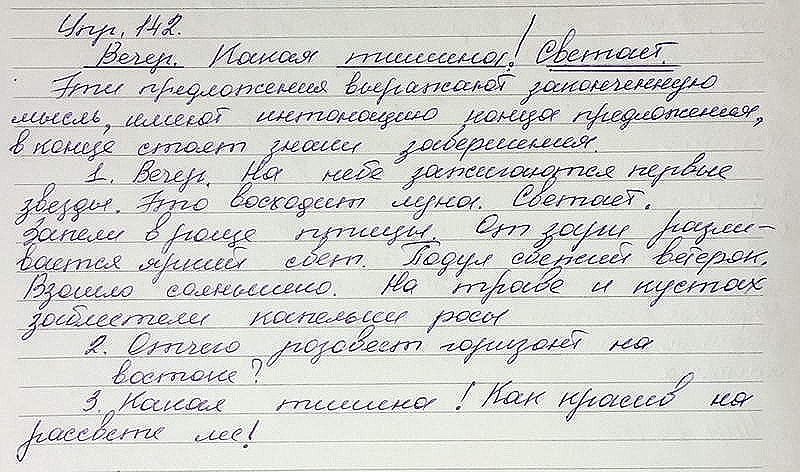 Упр. 142.
Вечер. Какая тишина! Светает.
Эти предложения выражают законченную
мысль, имеют интонацию конца предложения,
в конце стоят знаки завершения.
1. Вечер. На небе зажигаются первые
звезды. Это восходит луна. Светает.
Запели в роще птицы. От зари разли-
вается яркий свет. Подул свежий ветерок.
Взошло солнышко. На траве и кустах
заблестели капельки росы
2. Отчего розовеет горизонт на
востоке?
3. Какая тишина! Как красив на
рассвете лес!